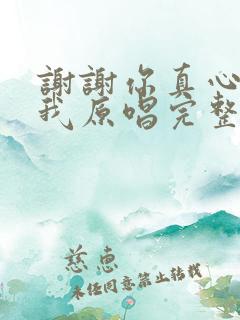 謝謝你真心
我原唱完整
慈惠
未经同意禁止转载